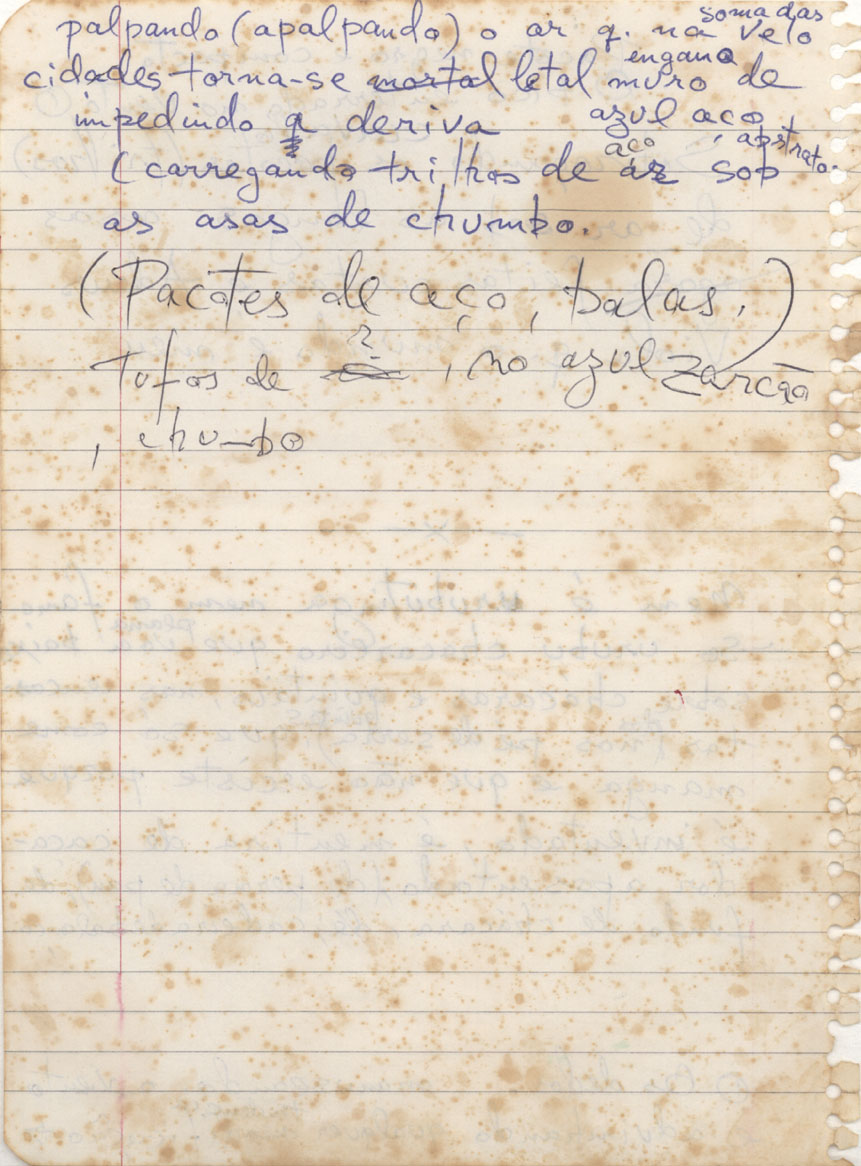 palpando (apalpando) o ar q. na soma das velo
cidades torna-se mortal letal muro de engano
impedindo q deriva azul aço, abstrato.
(carregando trilhos de aço az sob
as asas de chumbo.
(Pacotes de aço, balas.)
Tufos de ?, no azul zarcão
, chumbo